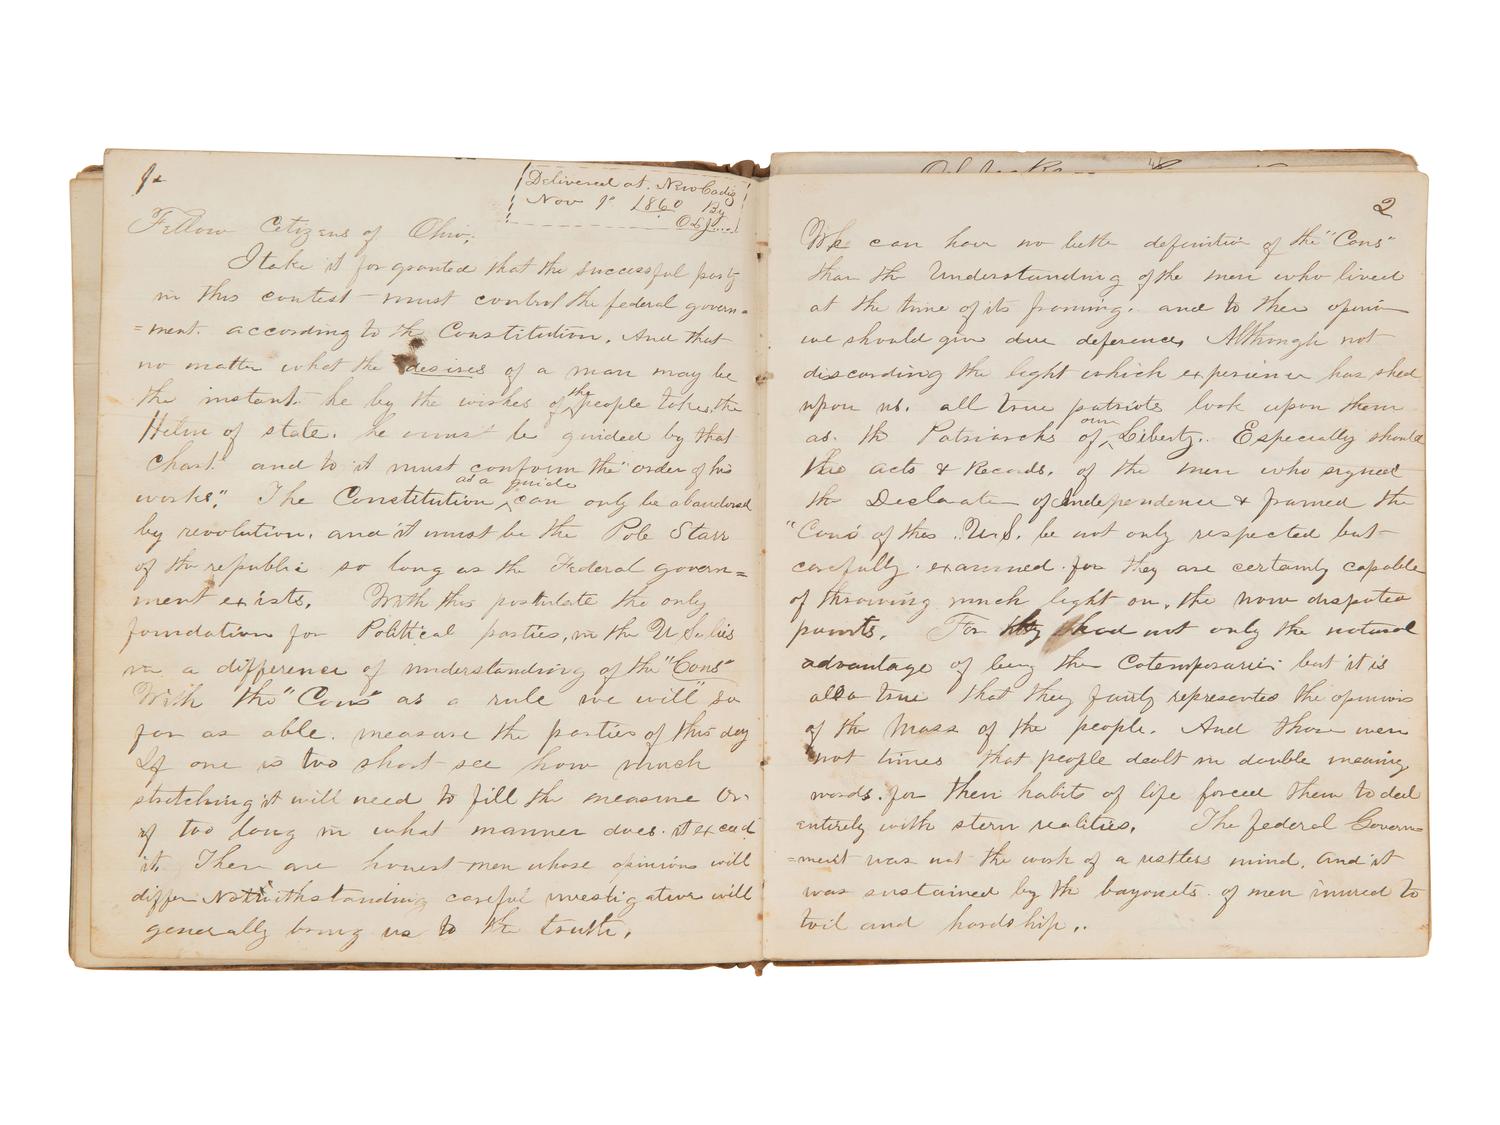 1
Delivered at New Cadiz
Nov 1st 1860 By
Fellow Citizens of Ohio;
I take it for granted that the successful party
in this contest must control the federal govern=
=ment. according to the Constitution. And that
no matter what the desires of a man may be
the instant he by the wishes of the people takes the
Helm of state. he must be guided by that
chart. and to it must conform the "order of his
works". The Constitution as a guide can only be abandoned
by revolution. and it must be the Pole Starr
of the republic so long as the Federal govern=
ment exists. With this postulate the only
foundation for Political parties, in the U S lies
in a difference of understanding of the "Cons"
With the "Cons" as a rule we will so
far as able. measure the parties of this day
If one is too short see how much
stretching it will need to fill the measure Or
if too long in what manner does it exceed
it. There are honest men whose opinions will
differ Notwithstanding careful investigation will
generally bring us to the truth.
2
We can have no better definition of the "Cons"
than the Understanding of the men who lived
at the time of its framing. and to their opinion
we should give due deference, Although not
discarding the light which experience has shed
upon us. all true patriots look upon them
as the Patriarchs of our Liberty. Especially should
the acts & Records. of the men who signed
the Declaration of Independence & framed the
"Cons" of this U.S. be not only respected but
carefully examined for they are certainly capable
of throwing much light on, the now disputed
points. For they had not only the natural
advantage of being the Cotemporaries but it is
also true that they fairly represented the opinions
of the Mass of the people. And those were
not times that people dealt in double meaning
words. for their habits of life forced them to deal
entirely with stern realities. The federal Govern=
=ment was not the work of a restless mind. and it
was sustained by the bayonets of men inured to
toil and hardship.